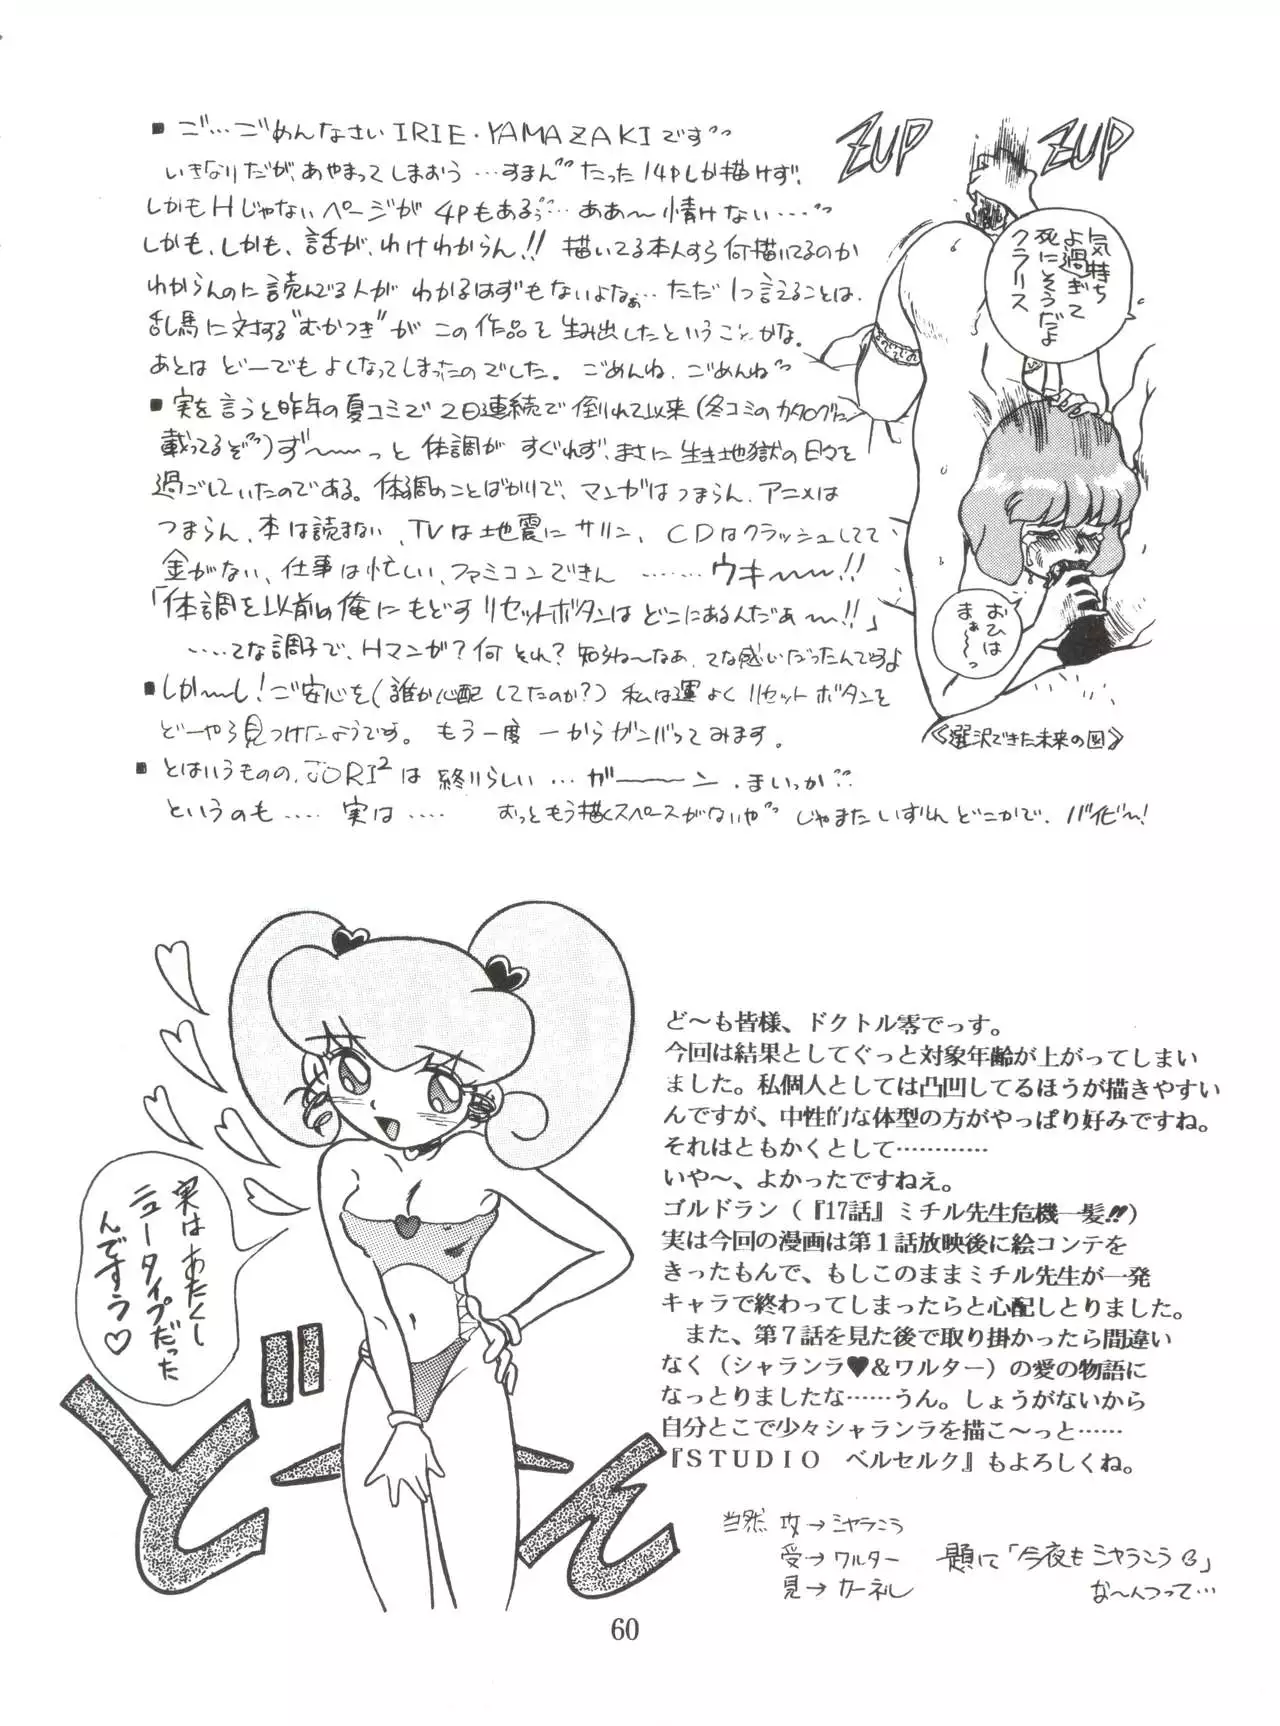 ■ ご…ごめんなさい IRIE・YAMAZAKIです
いきなりだが、あやまってしまおう …すまん たった14Pしか描けず、
しかもHじゃないページが 4Pもあるぅ… ああ〜情けない…
しかも、しかも、話が、わけわからん!! 描いてる本人すら何描いてるのか
わからんのに読んでる人が わかるはずもないよなぁ… ただ1つ言えることは、
乱馬に対する"むかつき"が この作品を生み出したということかな。
あとは どーでもよくなってしまったのでした。 ごめんね、ごめんね
■ 実を言うと昨年の夏コミで 2日連続で倒れて以来(冬コミのカタログに
載ってるぞ)ず〜〜っと 体調が すぐれず、まさに生き地獄の日々を
過ごしていたのである。体調のことばかりで、マンガはつまらん、アニメは
つまらん、本は読まない、TVは地震にサリン、CDはクラッシュしてて
金がない、仕事は忙しい、ファミコンできん ……… ウキ〜〜!!
「体調を以前の俺にもどすリセットボタンは どこにあるんだぁ〜!!」
……てな調子で、Hマンガ?何それ? 知らね〜なぁ、てな感じだったんですよ
■ しか〜し!ご安心を(誰か心配してたのか?) 私は運よくリセットボタンを
どーやら見つけたようです。 もう一度 一からガンバってみます。
■ とはいうものの、JORI²は 終りらしい … ガーーン、まいっか
というのも …… 実は …… おっともう描くスペースがないや じゃまたいずれどこかで、バイビ〜!
ZUP
ZUP
気持ち
よ過ぎて
死にそうだよ
クラリス
おひは
まぁ〜っ
《選沢できた未来の図》
実はあたくし
ニュータイプだった
んですぅ♡
ど〜ん
ど〜も皆様、ドクトル零でっす。
今回は結果としてぐっと対象年齢が上がってしまい
ました。私個人としては凸凹してるほうが描きやすい
んですが、中性的な体型の方がやっぱり好みですね。
それはともかくとして…………
いや〜、よかったですねえ。
ゴルドラン(『17話』ミチル先生危機一髪!!)
実は今回の漫画は第1話放映後に絵コンテを
きったもんで、もしこのままミチル先生が一発
キャラで終わってしまったらと心配しとりました。
また、第7話を見た後で取り掛かったら間違い
なく(シャランラ♥&ワルター)の愛の物語に
なっとりましたな……うん。しょうがないから
自分とこで少々シャランラを描こ〜っと……
『STUDIO ベルセルク』もよろしくね。
当然 攻→シャらこう
受→ワルター 題に「今夜もシャらこう」
見→カーネル な〜んつって…
60